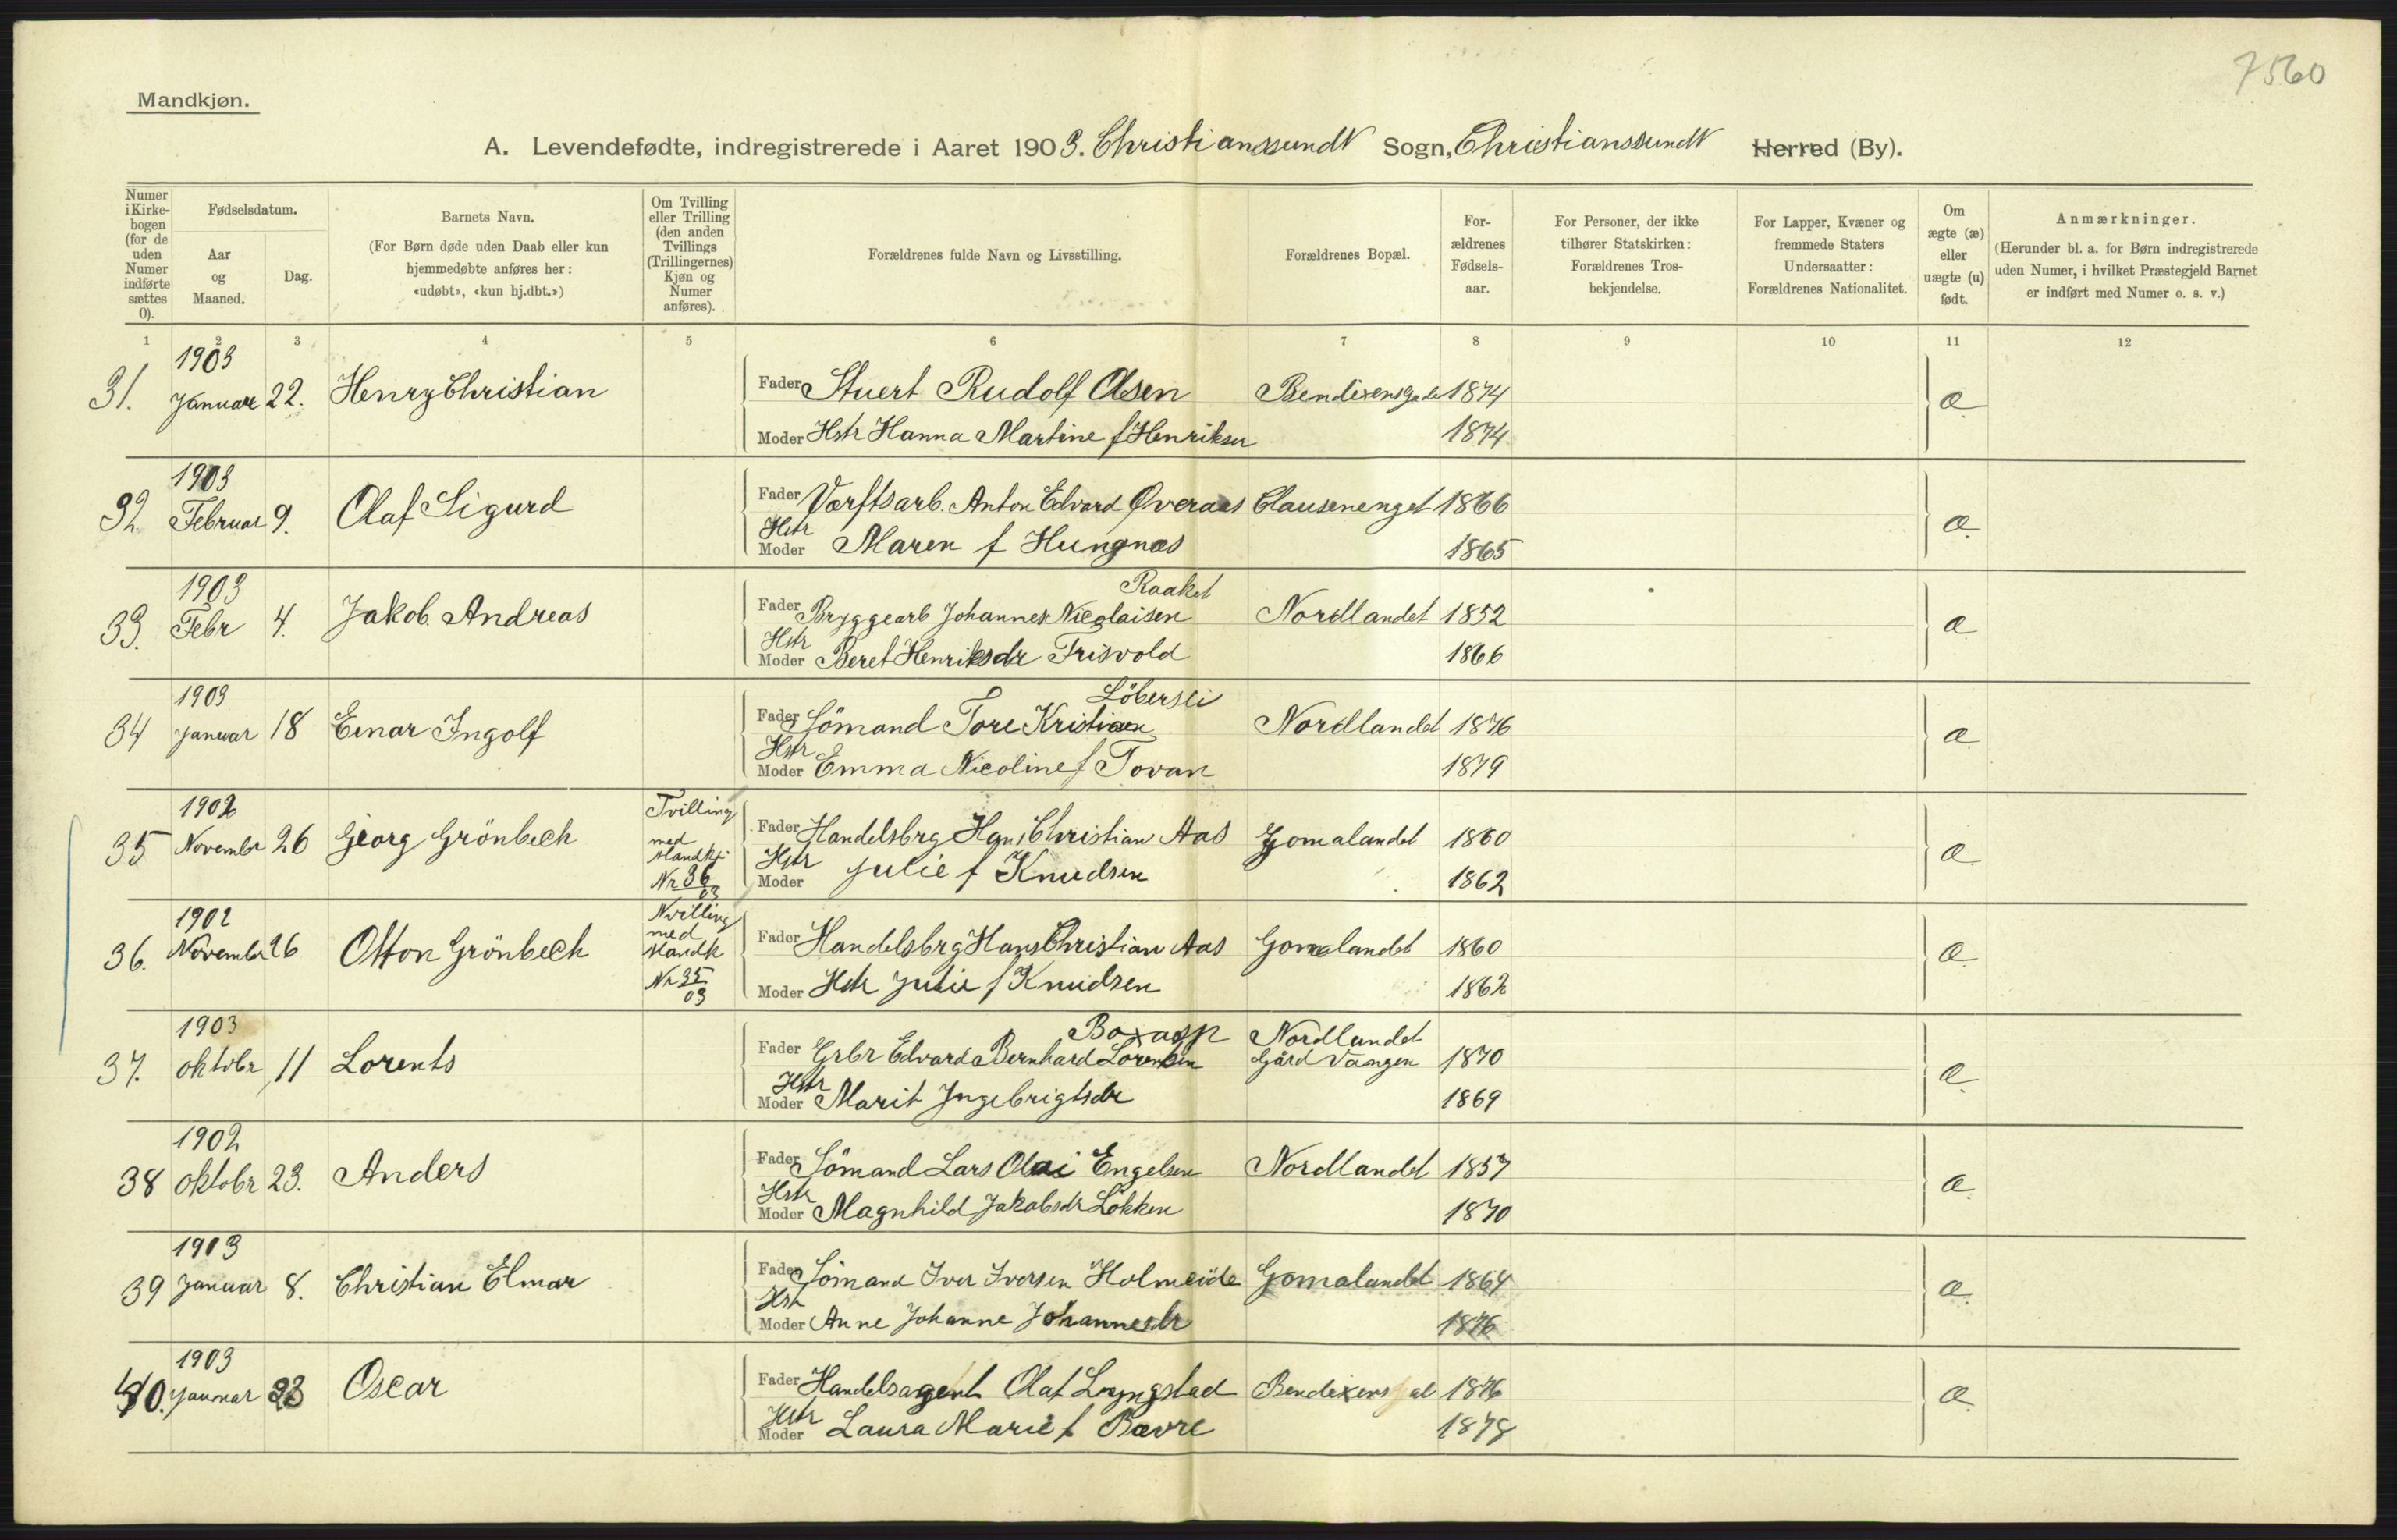 7560
Mandkjøn.
A. Levendefødte, indregistrerede i Aaret 1903. Christianssunds Sogn, Christianssunds Herred (By).
Numer i Kirkebogen (for de uden Numer indførte sættes 0).
Fødselsdatum.
Aar og Maaned.
Dag.
Barnets Navn.
(For Børn døde uden Daab eller kun hjemmedøbte anføres her: «udøbt», «kun hj.dbt.»)
Om Tvilling eller Trilling (den anden Tvillings (Trillingernes) Kjøn og Numer anføres).
Forældrenes fulde Navn og Livsstilling.
Forældrenes Bopæl.
Forældrenes Fødselsaar.
For Personer, der ikke tilhører Statskirken: Forældrenes Trosbekjendelse.
For Lapper, Kvæner og fremmede Staters Undersaatter: Forældrenes Nationalitet.
Om ægte (æ) eller uægte (u) født.
Anmærkninger.
(Herunder bl. a. for Børn indregistrerede uden Numer, i hvilket Præstegjeld Barnet er indført med Numer o. s. v.)
1 2 3 4 5 6 7 8 9 10 11 12
1903
31. Januar 22. Henry Christian Fader Stuert Rudolf Olsen Bendixensgade 1874 æ
Moder Hstr Hanna Martine f Henriksen 1874
1903
32 Februar 9. Olaf Sigurd Fader Værftsarb. Anton Edvard Øveraas Clausenenget 1866 æ.
Hstr
Moder Maren f Hungnæs 1865
1903 Raaket
33. Febr 4. Jakob Andreas Fader Bryggearb Johannes Nicolaisen Nordlandet 1852 æ
Hstr
Moder Beret Henriksdr Frisvold 1866
1903 Löbersli
34 Januar 18 Einar Ingolf Fader Sömand Tore Kristiansen Nordlandet 1876 æ
Hstr
Moder Emma Nicoline f Tovan 1879
1902 Tvilling
35 Novembr 26 Georg Grönbech med Mandkj Nr 36/03 Fader Handelsbrg Hans Christian Aas Gomalandet 1860 æ
Hstr
Moder Julie f Knudsen 1862
1902 Tvilling
36. Novembr 26 Otton Grönbech med Mandk Nr 35/03 Fader Handelsbrg Hans Christian Aas Gomalandet 1860 æ
Moder Hstr Julie f Knudsen 1862
1903 Boxasp Nordlandet
37. Oktobr 11 Lorents Fader Grbr Edvard Bernhard Lorentsen Gård Vangen 1870 æ
Hstr
Moder Marit Ingebrigtsdr 1869
1902
38 Oktobr 23. Anders Fader Sömand Lars Olai Engelsen Nordlandet 1857 æ.
Hstr
Moder Magnhild Jakobsdr Lökken 1870
1903
39 Januar 8. Christian Elmar Fader Sömand Iver Iversen Holmeide Gomalandet 1864 æ.
Hstr
Moder Anne Johanne Johannesdr 1876
1903
40. Januar 23 Oscar Fader Handelsagent Olaf Lyngstad Bendixens 1876 æ.
Hstr
Moder Laura Marie f Bævre 1878